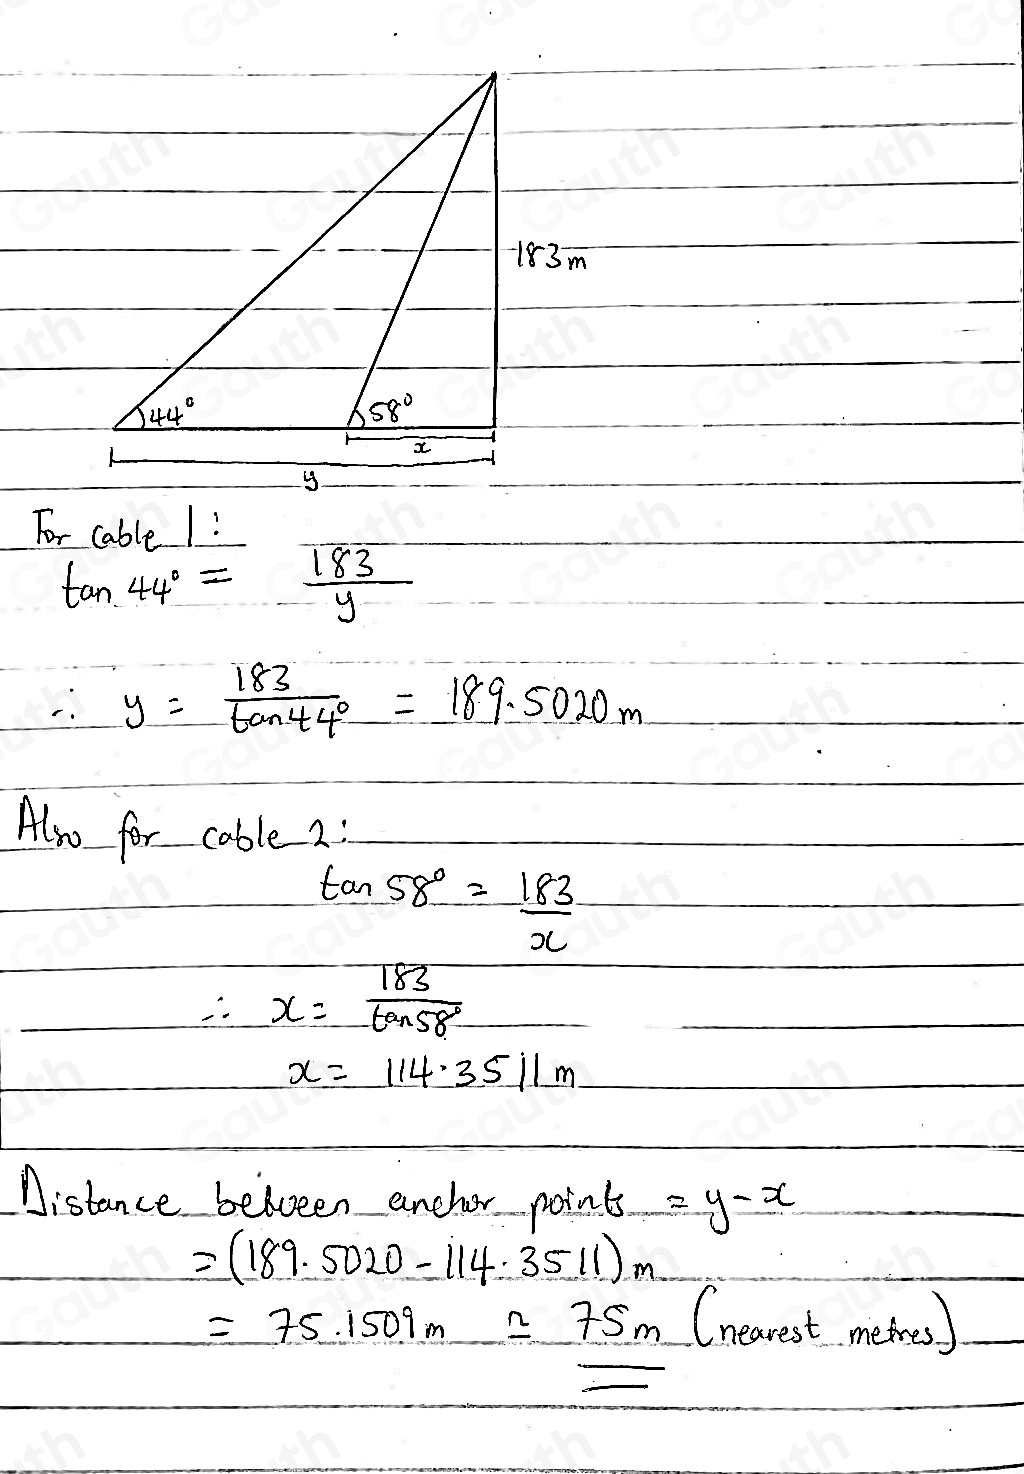 183m
44° 58°
x
y
For cable 1:
tan 44° = 183/y
∴ y = 183/tan44° = 189.5020m
Also for cable 2:
tan 58° = 183/x
∴ x = 183/tan58°
x = 114.3511m
Distance between anchor points = y-x
=(189.5020-114.3511)m
= 75.1509m ≃ 75m (nearest metres)
Gauth